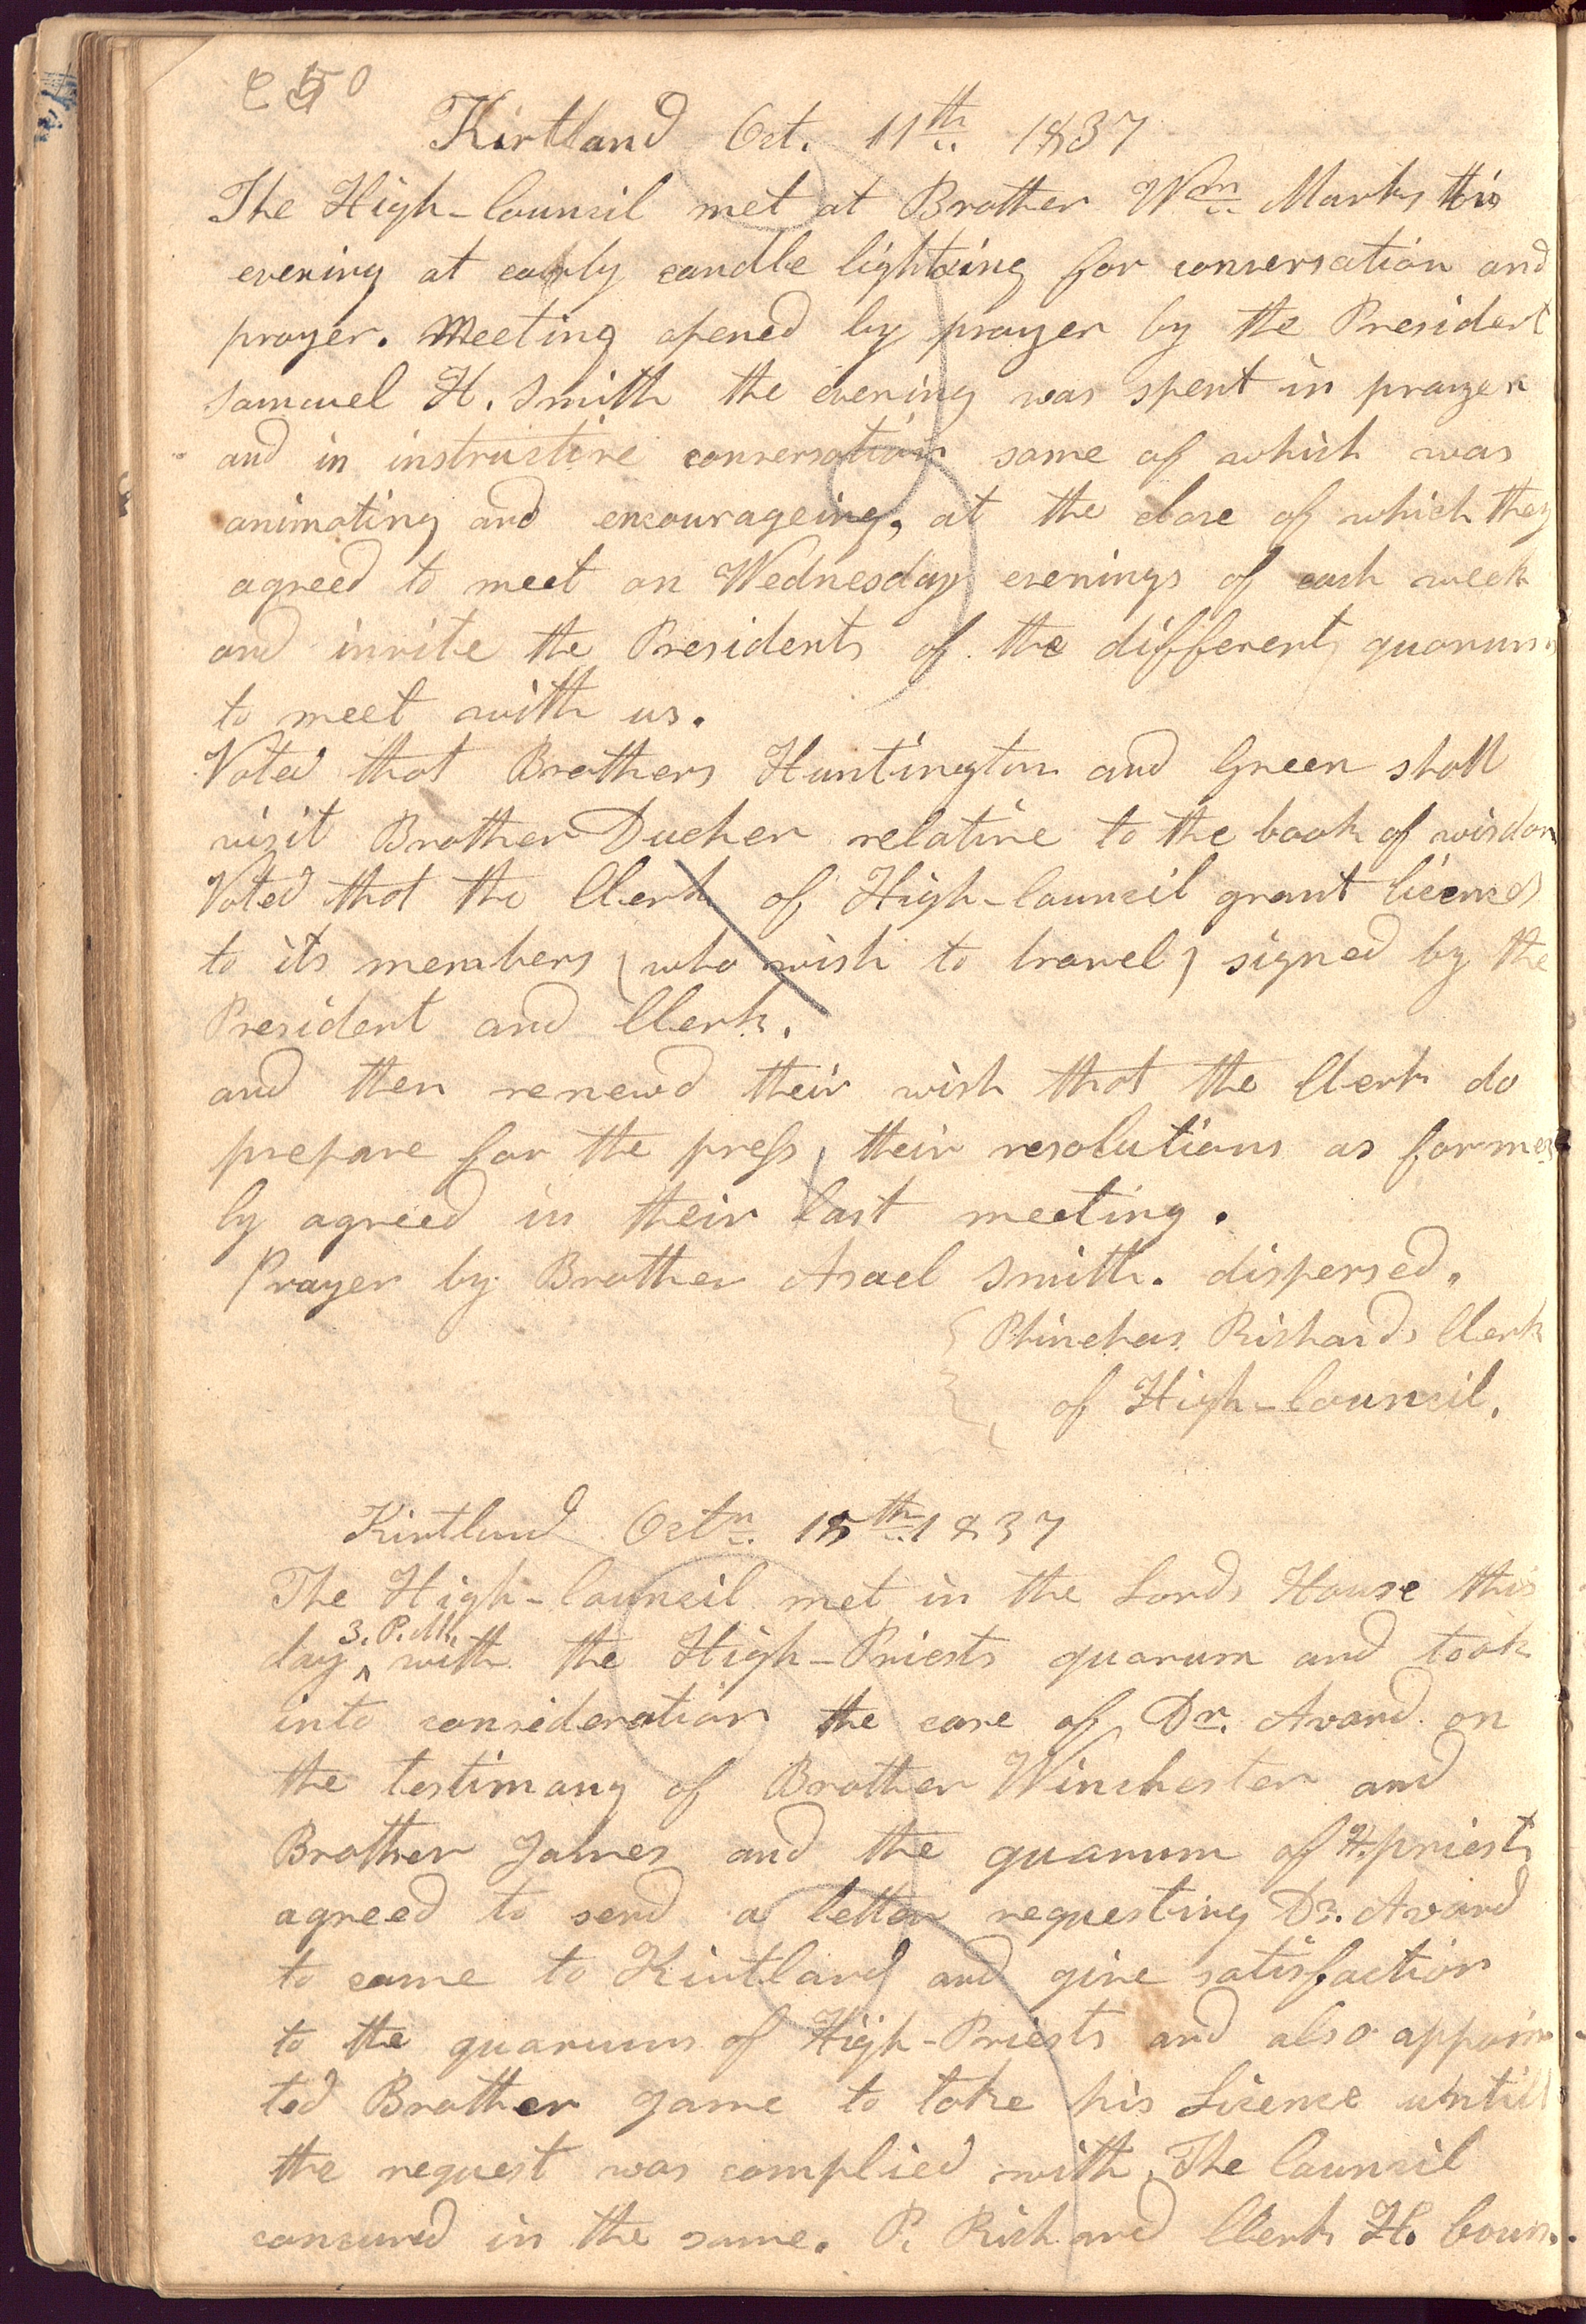 250
Kirtland Oct. 11th 1837
The High-Council met at Brother Wm Marks this
evening at early candle lighting for conversation and
prayer. Meeting opened by prayer by the President
Samuel H. Smith the evening was spent in prayer
and in instructive conversation some of which was
animating and encourageing, at the close of which they
agreed to meet on Wednesday evenings of each week
and invite the Presidents of the different quorums
to meet with us.
Voted that Brothers Huntington and Green shall
visit Brother Ducher relative to the book of wisdom
Voted that the Clerk of High-Council grant licences
to its members (who wish to travel) signed by the
President and Clerk.
and then renewd their wish that the Clerk do
prepare for the press, their resolutions as former
ly agreed in their last meeting.
Prayer by Brother Asael Smith. dispersed.
Phinehas Richards Clerk
of High-Council.
Kirtland Octr. 18th 1837
The High-Council met in the Lords House this
day 3. P.M. with the High-Priests quorum and took
into consideration the case of Dr. Avard on
the testimony of Brother Winchester and
Brother James and the quorum of H. priests
agreed to send a letter requesting Dr. Avard
to come to Kirtland and give satisfaction
to the quorum of High-Priests and also appoin-
ted Brother Jame to take his Licence untill
the request was complied with, The Council
concured in the same. P. Richard Clerk H. Coun.